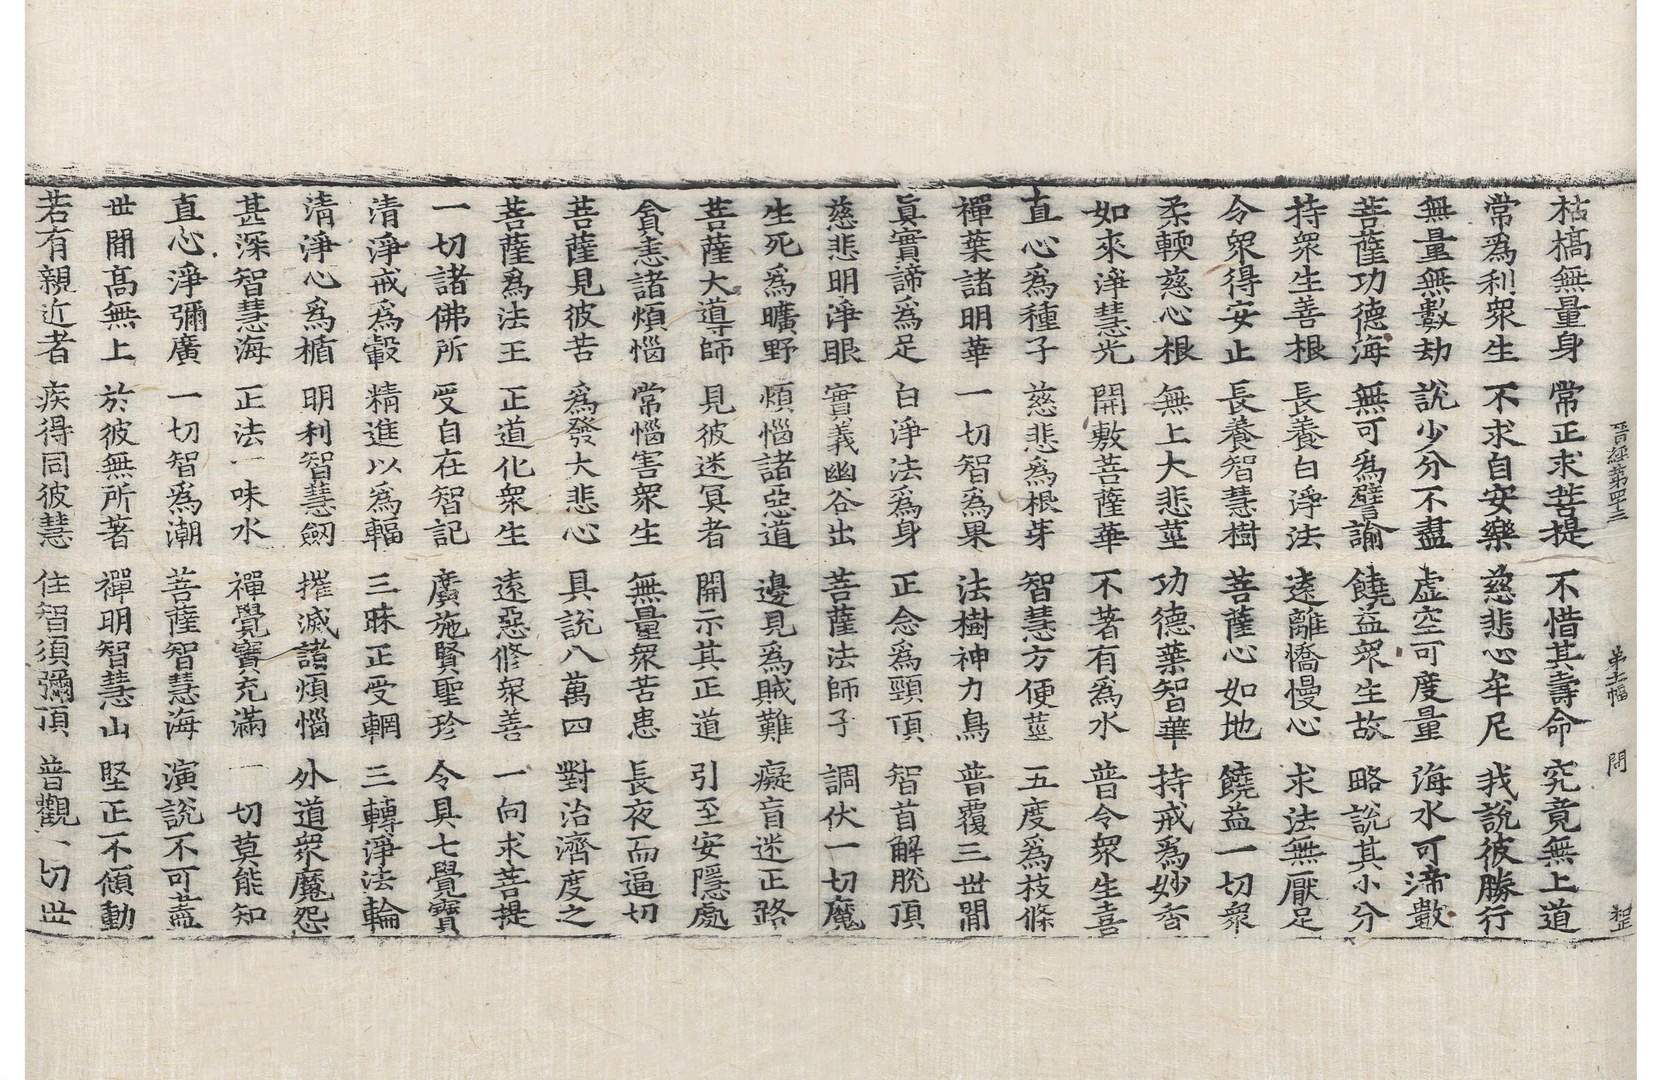 晋經第四十三 第十二幅 問 整
枯槁無量身 常正求菩提 不惜其壽命 究竟無上道
常爲利衆生 不求自安樂 慈悲心牟尼 我說彼勝行
無量無數劫 說少分不盡 虛空可度量 海水可渧數
菩薩功德海 無可爲譬諭 饒益衆生故 略說其小分
持衆生善根 長養白淨法 遠離憍慢心 求法無厭足
令衆得安止 長養智慧樹 菩薩心如地 饒益一切衆
柔輭慈心根 無上大悲莖 功德葉智華 持戒爲妙香
如來淨慧光 開敷菩薩華 不著有爲水 普令衆生喜
直心爲種子 慈悲爲根芽 智慧方便莖 五度爲枝條
禪葉諸明華 一切智爲果 法樹神力鳥 普覆三世間
眞實諦爲足 白淨法爲身 正念爲頸頂 智首解脫頂
慈悲明淨眼 實義幽谷出 菩薩法師子 調伏一切魔
生死爲曠野 煩惱諸惡道 邊見爲賊難 癡盲迷正路
菩薩大導師 見彼迷冥者 開示其正道 引至安隱處
貪恚諸煩惱 常惱害衆生 無量衆苦患 長夜而逼切
菩薩見彼苦 爲發大悲心 具說八萬四 對治濟度之
菩薩爲法王 正道化衆生 遠惡修衆善 一向求菩提
一切諸佛所 受自在智記 廣施賢聖珍 令具七覺寶
清淨戒爲轂 精進以爲輻 三昧正受輞 三轉淨法輪
清淨心爲楯 明利智慧劒 摧滅諸煩惱 外道衆魔怨
甚深智慧海 正法一味水 禪覺寶充滿 一切莫能知
直心淨彌廣 一切智爲潮 菩薩智慧海 演說不可盡
世間高無上 於彼無所著 禪明智慧山 堅正不傾動
若有親近者 疾得同彼慧 住智須彌頂 普觀一切世